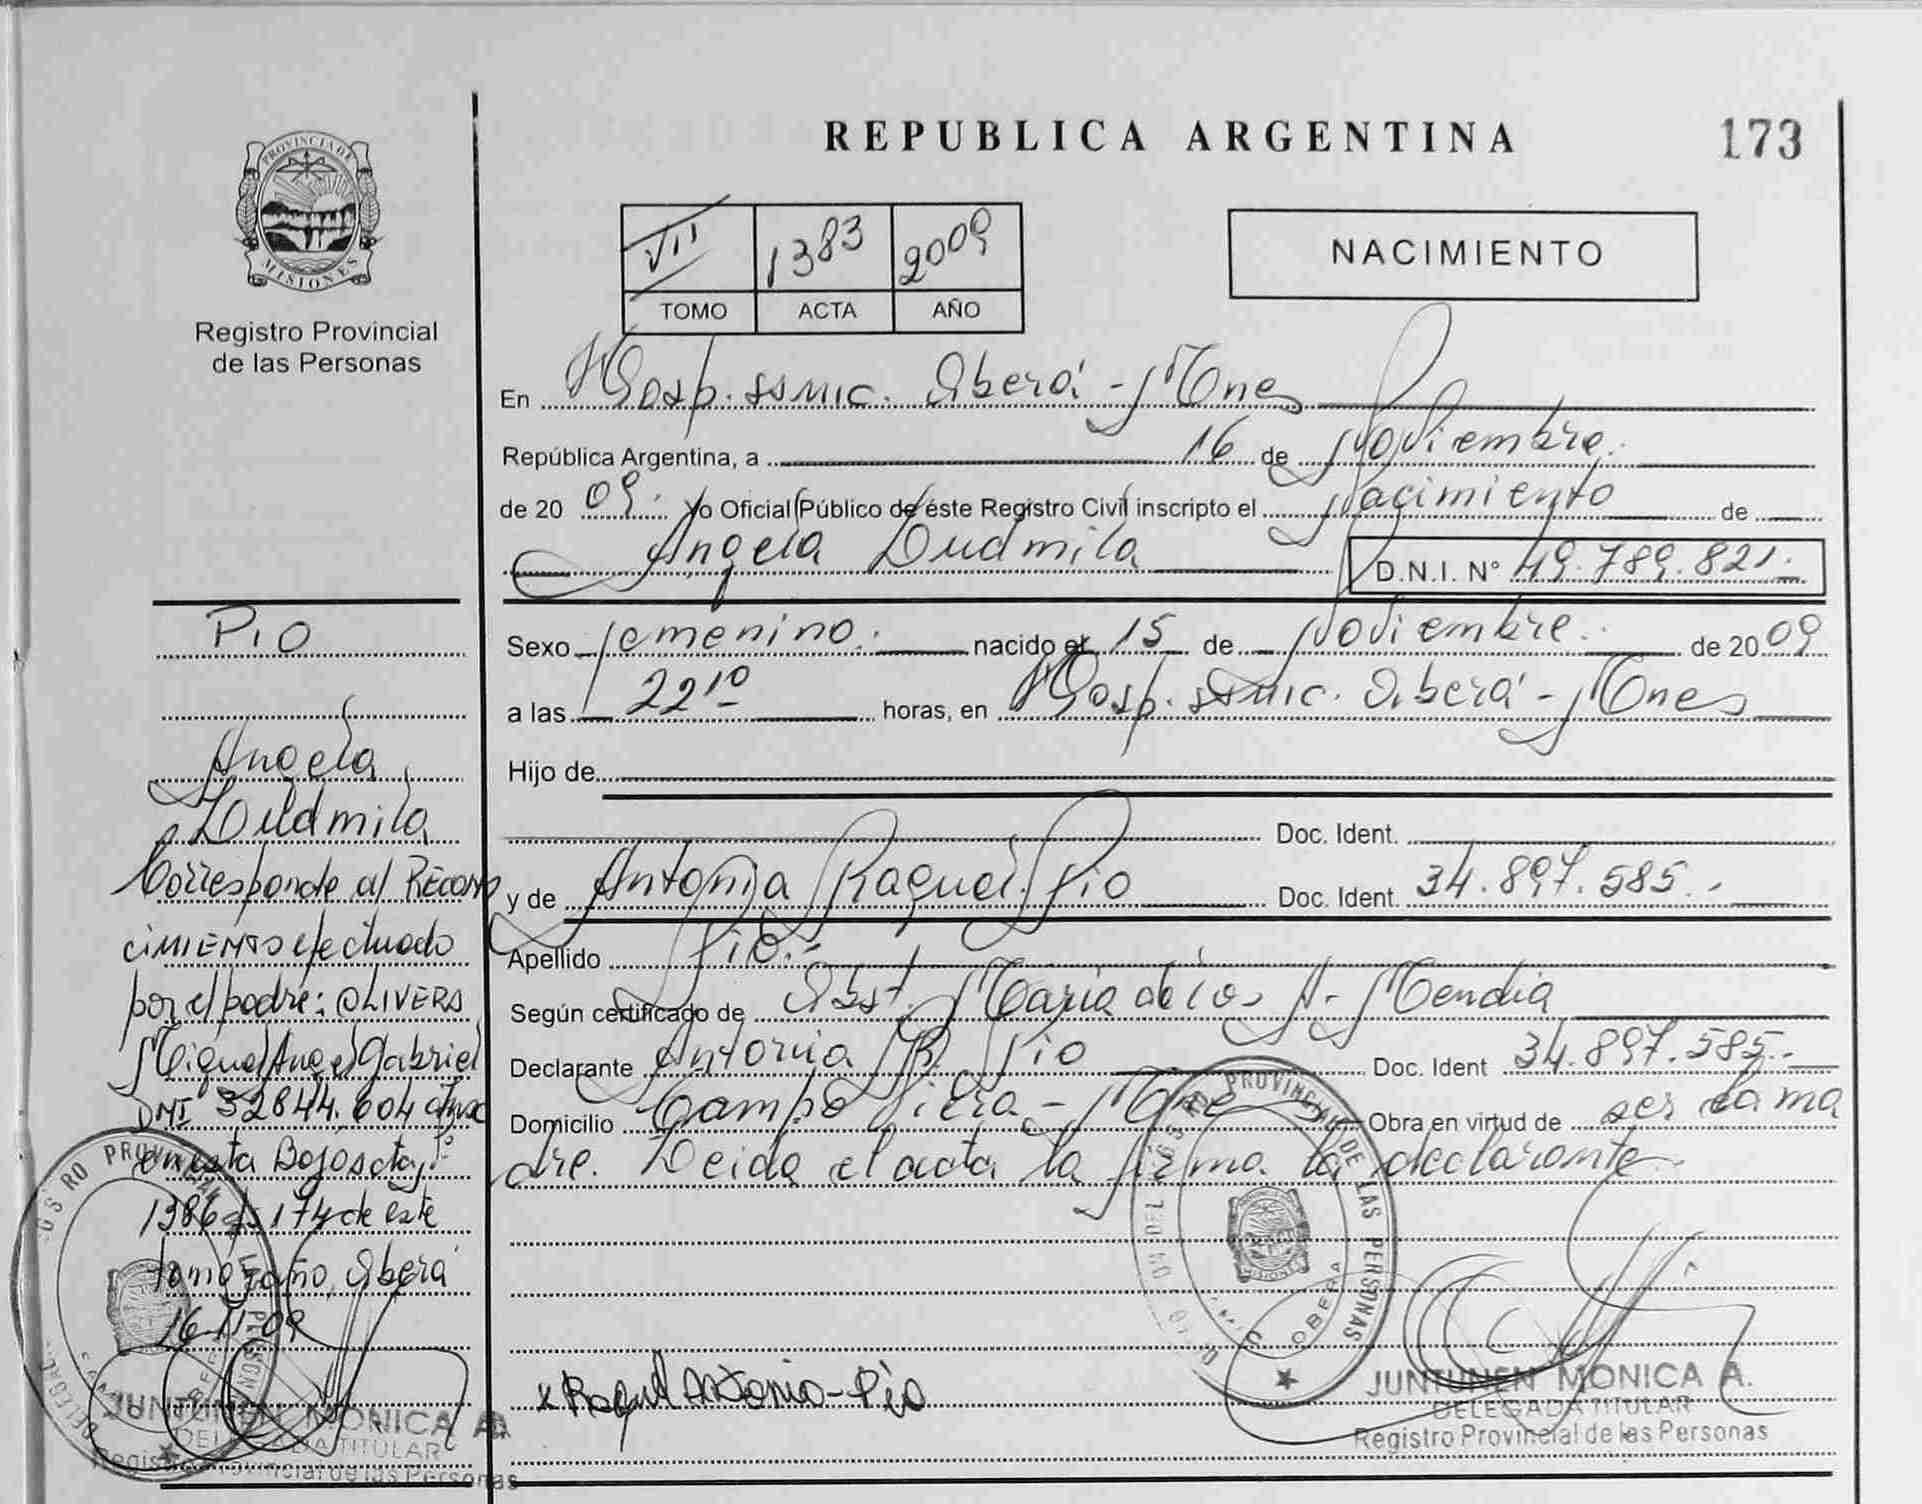 PROVINCIA DE
MISIONES
Registro Provincial
de las Personas
REPUBLICA ARGENTINA
173
VII 1383 2009
TOMO ACTA AÑO
NACIMIENTO
En Hosp. ssmic. Oberá - Mnes
República Argentina, a 16 de Noviembre.
de 20 09. Yo Oficial Público de éste Registro Civil inscripto el Nacimiento de
Angela Ludmila D.N.I. N° 49.789.821.
Sexo femenino. nacido el 15 de Noviembre. de 20 09
a las 22 10 horas, en Hosp. ssmic. Oberá - Mnes
Hijo de
Doc. Ident.
y de Antonia Raquel Pio Doc. Ident 34.897.585.
Apellido Pio.
Según certificado de Obst. Maria de los A. Mendia
Declarante Antonia R. Pio Doc. Ident 34.897.585.
Domicilio Campo Viera - Mnes Obra en virtud de ser la ma
dre. Leida el acta la firma la declarante.
x Raquel Antonia - Pio
JUNTUNEN MONICA A.
DELEGADA TITULAR
Registro Provincial de las Personas
PIO
Angela
Ludmila
Corresponde al RECONO
CIMIENTO efectuado
por el padre: OLIVERA
Miguel Angel Gabriel
DNI 32844.604
en esta Bajo acta
1386 fs 174 de este
tomo y año, Oberá
16-11-09
JUNTUNEN MONICA A.
DELEGADA TITULAR
Registro Provincial de las Personas